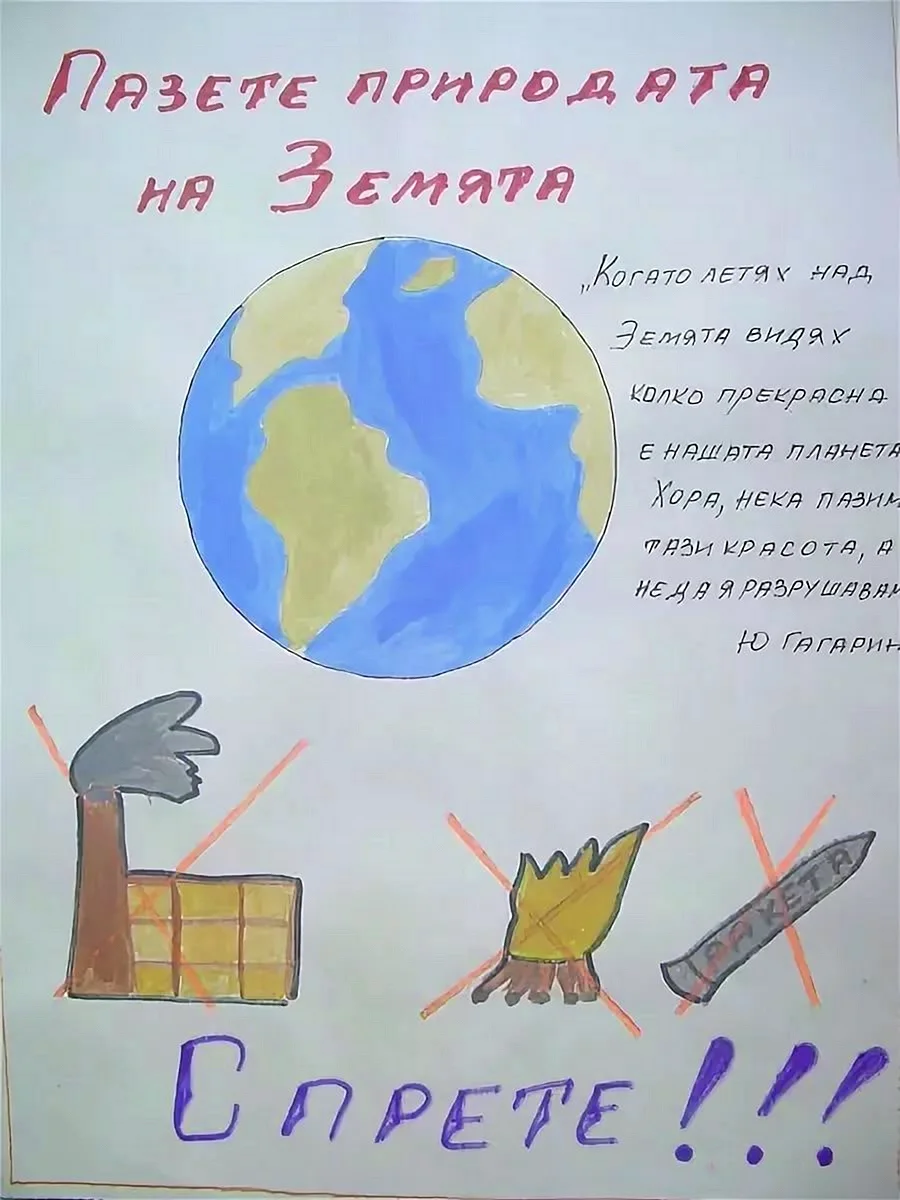 Пазете природата
на Земята
„Когато летях над
Земята видях
колко прекрасна
е нашата планета
Хора, нека пазим
тази красота, а
не да я разрушавам
Ю Гагарин
РАКЕТА
Спрете!!!